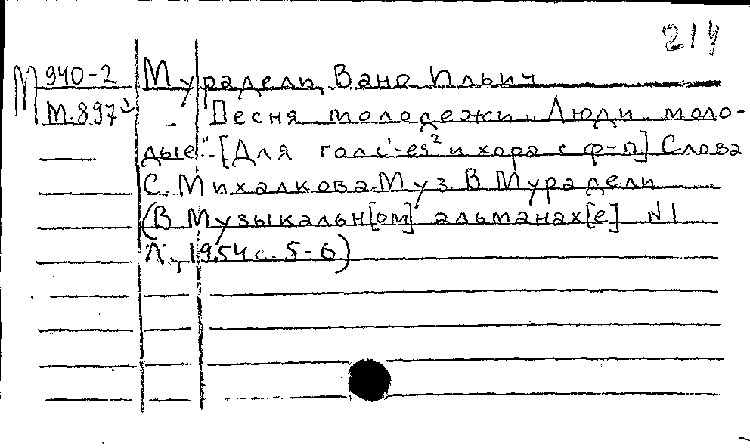 214
М 940-2 Мурадели, Вано Ильич
М.897 Песня молодежи "Люди моло-
дые". [Для голс-ея² и хора с ф-п] Слова
С. Михалкова. Муз В Мурадели
(В Музыкальн[ом] альманах[е] №1
Л., 1954 с. 5-6)